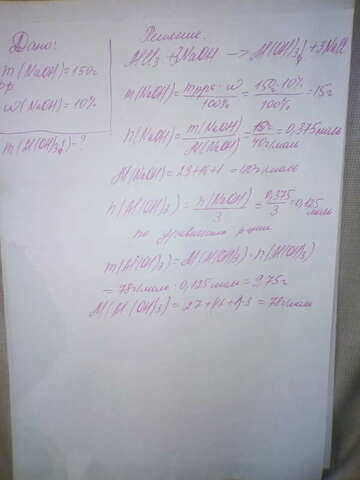 Дано:
m(NaOH)=150г
рр
ω(NaOH)=10%
m(Al(OH)3)-?
Решение.
AlCl3+3NaOH → Al(OH)3↓+3NaCl
m(NaOH)=mрра·ω/100%=150г·10%/100%=15г
n(NaOH)=m(NaOH)/M(NaOH)=15г/40г/моль=0,375моль
M(NaOH)=23+16+1=40г/моль
n(Al(OH)3)=n(NaOH)/3=0,375/3=0,125моль
по уравнению р-ции
m(Al(OH)3)=M(Al(OH)3)·n(Al(OH)3)
=78г/моль·0,125моль=9,75г
M(Al(OH)3)=27+(16+1)·3=78г/моль